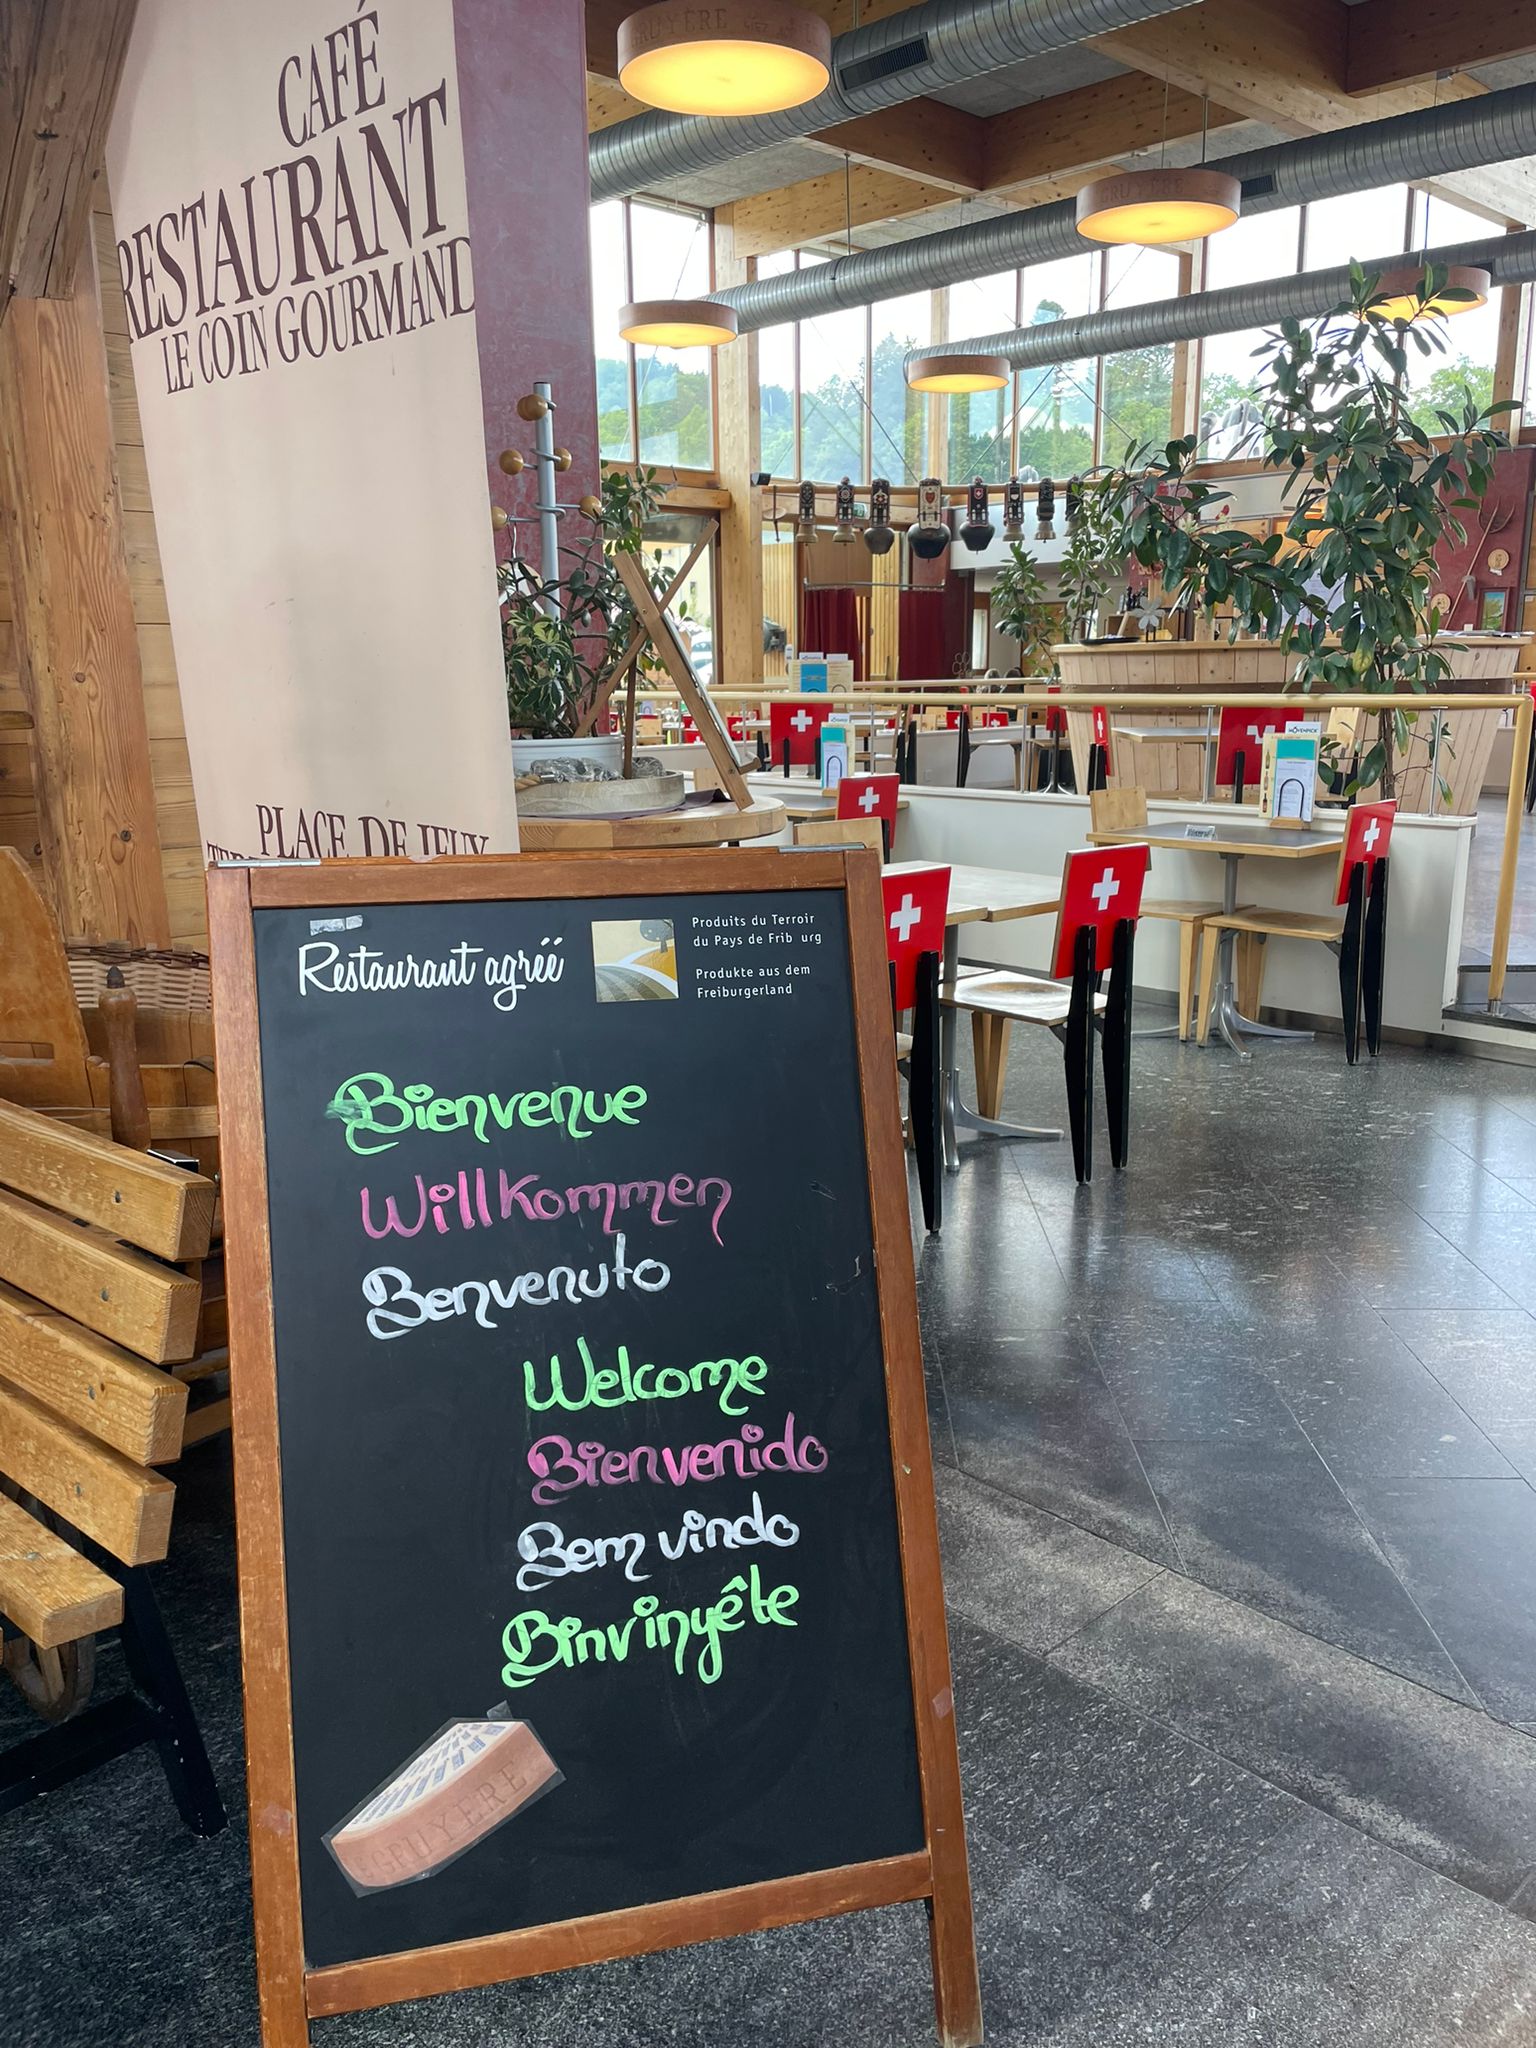 CAFÉ
RESTAURANT
LE COIN GOURMAND
PLACE DE JEUX
Restaurant agréé
Produits du Terroir
du Pays de Frib urg
Produkte aus dem
Freiburgerland
Bienvenue
Willkommen
Benvenuto
Welcome
Bienvenido
Bem vindo
Binvinyête
GRUYÈRE
GRUYÈRE
GRUYÈRE
MÖVENPICK
Réservé